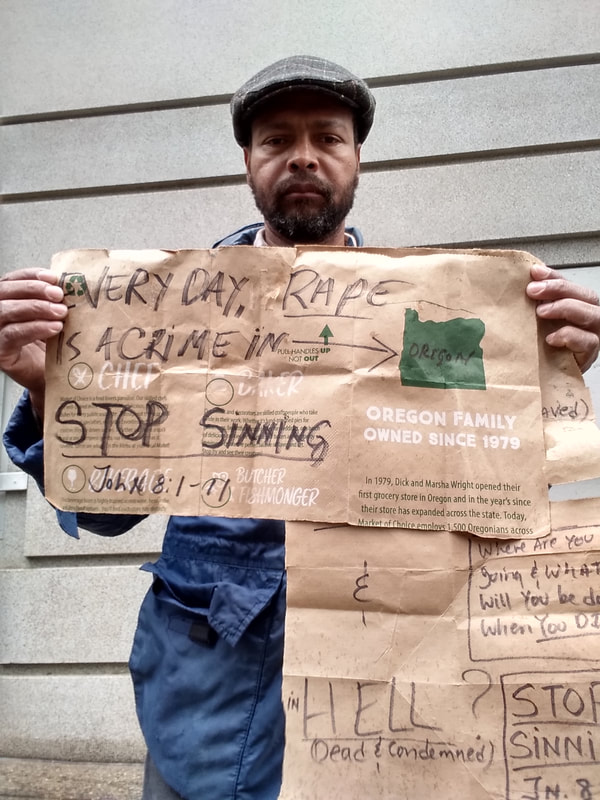 EVERY DAY, RAPE
IS A CRIME IN
PULL HANDLES UP
NOT OUT
OREGON
CHEF
BAKER
STOP SINNING
OREGON FAMILY
OWNED SINCE 1979
John 8:1-11
BUTCHER
FISHMONGER
In 1979, Dick and Marsha Wright opened their
first grocery store in Oregon and in the year's since
their store has expanded across the state. Today,
Market of Choice employs 1,500 Oregonians across
aved)
&
Where Are You
going & WHAT
Will You be do
When You DI
IN HELL ?
(Dead & Condemned)
STOP
SINNI
JN. 8